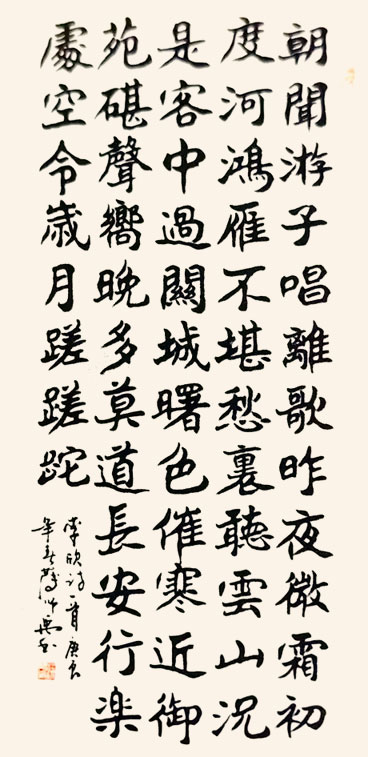 朝聞游子唱離歌昨夜微霜初
度河鴻雁不堪愁裏聽雲山況
是客中過關城曙色催寒近御
苑碪聲嚮晚多莫道長安行楽
處空令歲月蹉蹉跎
李欣詩一首庚辰
年春